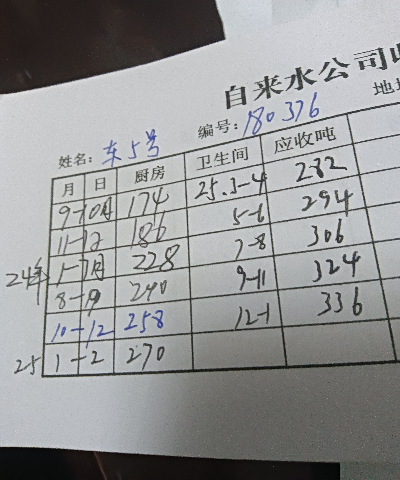 自来水公司收
姓名: 东5号 编号: 180376 地
月 日 厨房 卫生间 应收吨
9-10月 174 25.3-4 282
11-12 186 5-6 294
24年 1-7月 228 7-8 306
8-9 240 9-11 324
10-12 258 12-1 336
25 1-2 270